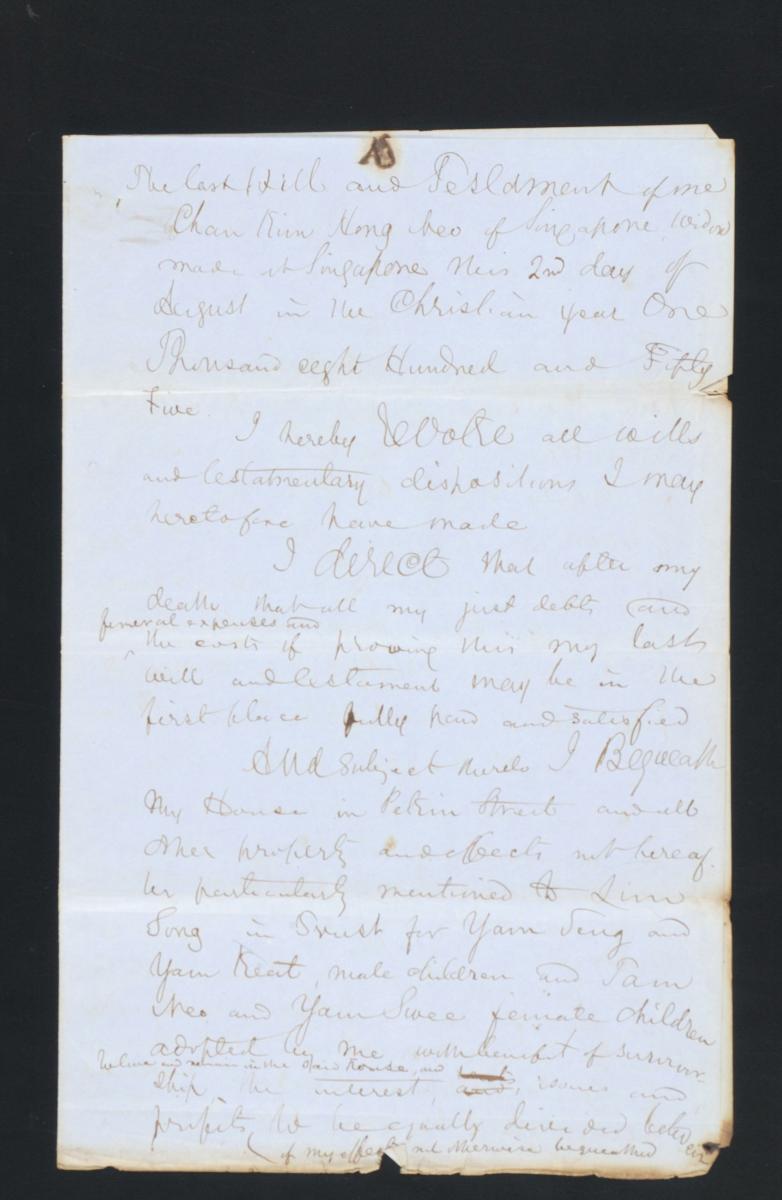 The last Will and Testament of me
Chan Kim Hong Neo of Singapore Widow
made at Singapore this 2nd day of
August in the Christian year One
Thousand eight Hundred and Fifty
Five
I hereby Revoke all wills
and testamentary dispositions I may
heretofore have made
I direct that after my
death that all my just debts and
funeral expenses and
the costs of proving this my last
will and testament may be in the
first place fully paid and satisfied
And subject thereto I Bequeath
My House in Street and all
other property and effects not hereaf-
ter particularly mentioned to Lim
Song in Trust for Yam Seng and
Yam Keat, male children and Tam
Neo and Yam Swee female children
adopted by me, with benefit of survivor-
to live and remain in the said House, and
ship the interest, and issues and
profits to be equally divided
of my effects not otherwise bequeathed